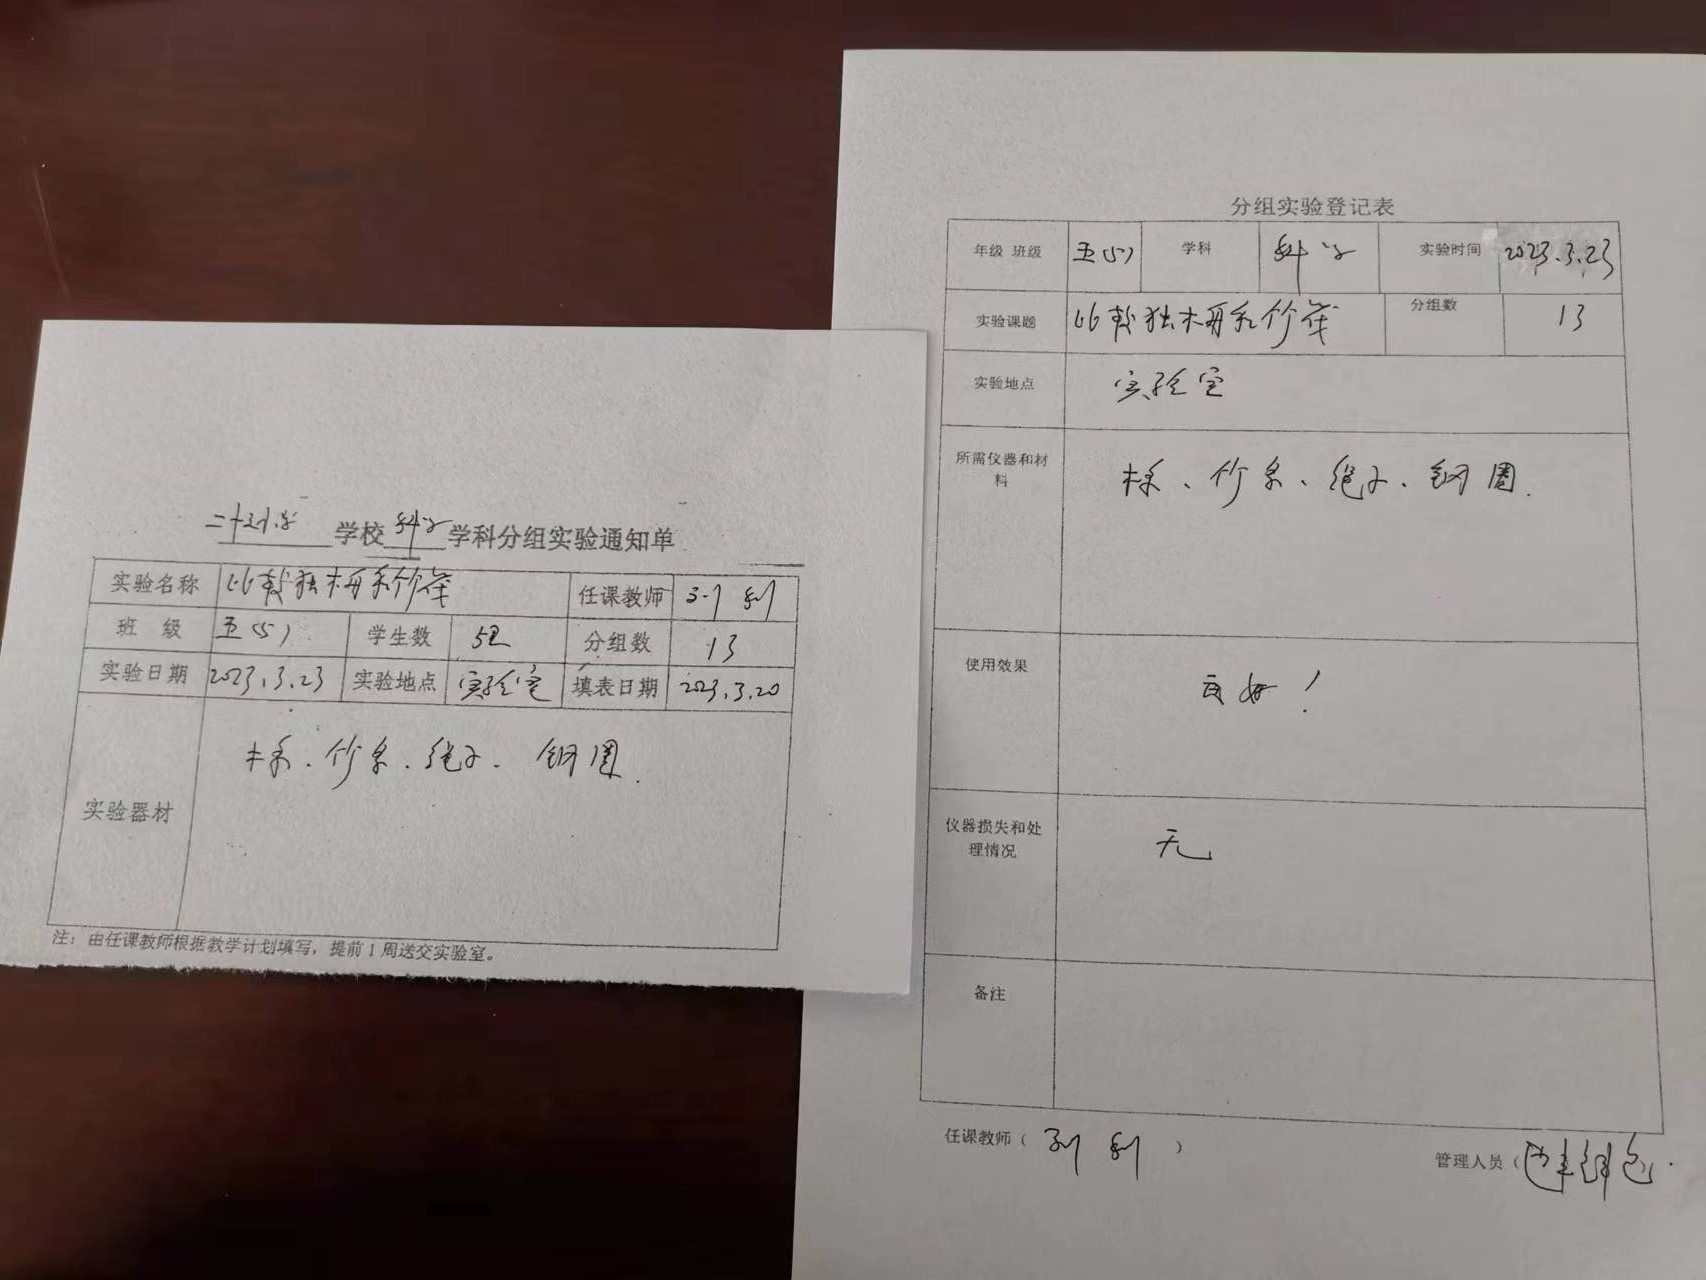 学校科学学科分组实验通知单
实验名称 比较独木舟和竹筏 任课教师
班 级 五(5) 学生数 52 分组数 13
实验日期 2023.3.23 实验地点 实验室 填表日期 2023.3.20
实验器材 木条、竹条、绳子、钢圈.
注：由任课教师根据教学计划填写，提前1周送交实验室。
分组实验登记表
年级 班级 五(5) 学科 科学 实验时间 2023.3.23
实验课题 比较独木舟和竹筏 分组数 13
实验地点 实验室
所需仪器和材
料
木条、竹条、绳子、钢圈.
使用效果 良好！
仪器损失和处
理情况
无
备注
任课教师（ ） 管理人员（